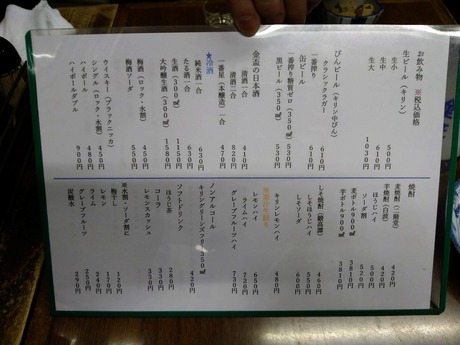 お飲み物 ※税込価格
生ビール（キリン）
生小 500円
生中 610円
生大 1035円
びんビール（キリン中びん）
クラシックラガー 610円
一番搾り 610円
缶ビール
一番搾り糖質ゼロ（350㎖） 530円
黒ビール（350㎖） 530円
金盃の日本酒
清酒一合 410円
清酒二合 820円
一番星（本醸造）一合 470円
★冷酒
純米酒一合 630円
たる酒一合 630円
生酒（300㎖） 1150円
大吟醸生酒（300㎖） 1580円
梅酒（ロック・水割） 450円
梅酒ソーダ 550円
ウイスキー（ブラックニッカ）
シングル（ロック・水割） 480円
ハイボール 520円
ハイボールダブル 900円
焼酎
麦焼酎（二階堂） 420円
芋焼酎（白波） 420円
ほうじ割 500円
ソーダ割 520円
麦ボトル900㎖ 3810円
芋ボトル900㎖ 3810円
しそ焼酎（鍛高譚） 460円
しそほうじハイ 550円
しそソーダ 560円
キリンレモンハイ 480円
レモンハイ 650円
ライムハイ 720円
グレープフルーツハイ 730円
ノンアルコール
キリングリーンズフリー350㎖ 420円
ソフトドリンク
ほうじ茶 280円
コーラ 330円
レモンスカッシュ 330円
※水割・ソーダ割に
梅干し 120円
レモン 170円
ライム 240円
グレープフルーツ 250円
炭酸水 290円